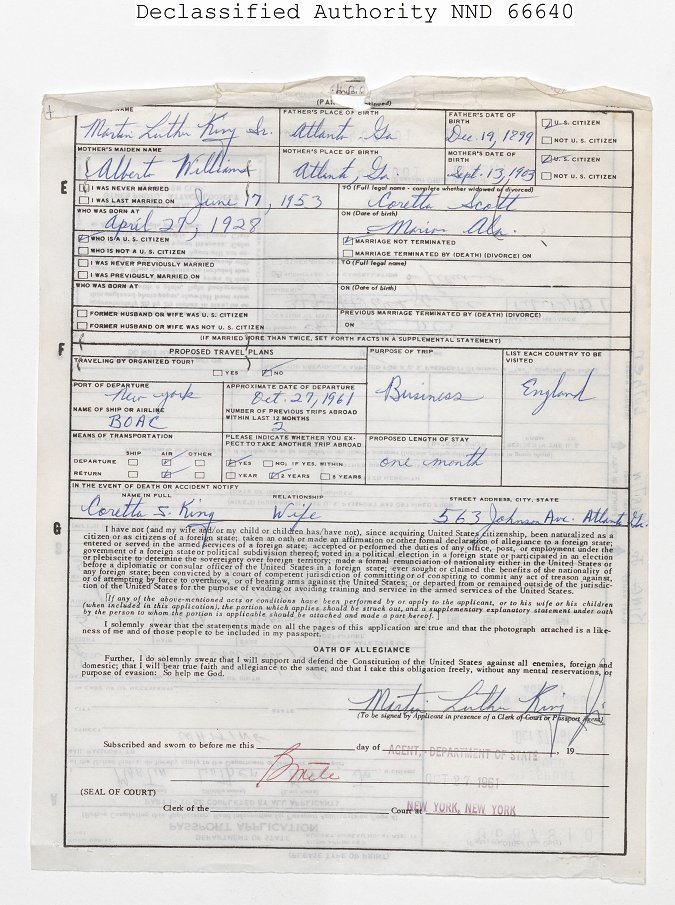 Declassified Authority NND 66640
(PA tinued)
NAME
FATHER'S PLACE OF BIRTH
FATHER'S DATE OF BIRTH
U.S. CITIZEN
Martin Luther King Sr.
Atlanta Ga
Dec. 19, 1899
NOT U.S. CITIZEN
MOTHER'S MAIDEN NAME
MOTHER'S PLACE OF BIRTH
MOTHER'S DATE OF BIRTH
U.S. CITIZEN
Alberta Williams
Atlanta, Ga.
Sept. 13, 1903
NOT U.S. CITIZEN
E
I WAS NEVER MARRIED
I WAS LAST MARRIED ON June 17, 1953
TO (Full legal name - complete whether widowed or divorced)
Coretta Scott
WHO WAS BORN AT
April 27, 1928
ON (Date of birth)
Marion Ala.
WHO IS A U.S. CITIZEN
WHO IS NOT A U.S. CITIZEN
MARRIAGE NOT TERMINATED
MARRIAGE TERMINATED BY (DEATH) (DIVORCE) ON
I WAS NEVER PREVIOUSLY MARRIED
I WAS PREVIOUSLY MARRIED ON
TO (Full legal name)
WHO WAS BORN AT
ON (Date of birth)
FORMER HUSBAND OR WIFE WAS U.S. CITIZEN
FORMER HUSBAND OR WIFE WAS NOT U.S. CITIZEN
PREVIOUS MARRIAGE TERMINATED BY (DEATH) (DIVORCE)
ON
(IF MARRIED MORE THAN TWICE, SET FORTH FACTS IN A SUPPLEMENTAL STATEMENT)
F
PROPOSED TRAVEL PLANS
TRAVELING BY ORGANIZED TOUR?
YES NO
PURPOSE OF TRIP
Business
LIST EACH COUNTRY TO BE VISITED
England
PORT OF DEPARTURE
New York
APPROXIMATE DATE OF DEPARTURE
Oct. 27, 1961
NAME OF SHIP OR AIRLINE
BOAC
NUMBER OF PREVIOUS TRIPS ABROAD WITHIN LAST 12 MONTHS
2
MEANS OF TRANSPORTATION
SHIP AIR OTHER
DEPARTURE
RETURN
PLEASE INDICATE WHETHER YOU EX-
PECT TO TAKE ANOTHER TRIP ABROAD
YES NO; IF YES, WITHIN
YEAR 2 YEARS 5 YEARS
PROPOSED LENGTH OF STAY
one month
IN THE EVENT OF DEATH OR ACCIDENT NOTIFY
NAME IN FULL RELATIONSHIP STREET ADDRESS, CITY, STATE
Coretta S. King Wife 563 Johnson Ave. Atlanta Ga.
G
I have not (and my wife and/or my child or children has/have not), since acquiring United States citizenship, been naturalized as a
citizen or as citizens of a foreign state; taken an oath or made an affirmation or other formal declaration of allegiance to a foreign state;
entered or served in the armed services of a foreign state; accepted or performed the duties of any office, post, or employment under the
government of a foreign state or political subdivision thereof; voted in a political election in a foreign state or participated in an election
or plebiscite to determine the sovereignty over foreign territory; made a formal renunciation of nationality either in the United States or
before a diplomatic or consular officer of the United States in a foreign state; ever sought or claimed the benefits of the nationality of
any foreign state; been convicted by a court of competent jurisdiction of committing or of conspiring to commit any act of treason against,
or of attempting by force to overthrow, or of bearing arms against the United States; or departed from or remained outside of the jurisdic-
tion of the United States for the purpose of evading or avoiding training and service in the armed services of the United States.
[If any of the above-mentioned acts or conditions have been performed by or apply to the applicant, or to his wife or his children
(when included in this application), the portion which applies should be struck out, and a supplementary explanatory statement under oath
by the person to whom the portion is applicable should be attached and made a part hereof.]
I solemnly swear that the statements made on all the pages of this application are true and that the photograph attached is a like-
ness of me and of those people to be included in my passport.
OATH OF ALLEGIANCE
Further, I do solemnly swear that I will support and defend the Constitution of the United States against all enemies, foreign and
domestic; that I will bear true faith and allegiance to the same; and that I take this obligation freely, without any mental reservations, or
purpose of evasion: So help me God.
Martin Luther King Jr
(To be signed by Applicant in presence of a Clerk of Court or Passport Agent)
Subscribed and sworn to before me this day of AGENT, DEPARTMENT OF STATE, 19
OCT 27 1961
(SEAL OF COURT)
Clerk of the Court at NEW YORK, NEW YORK